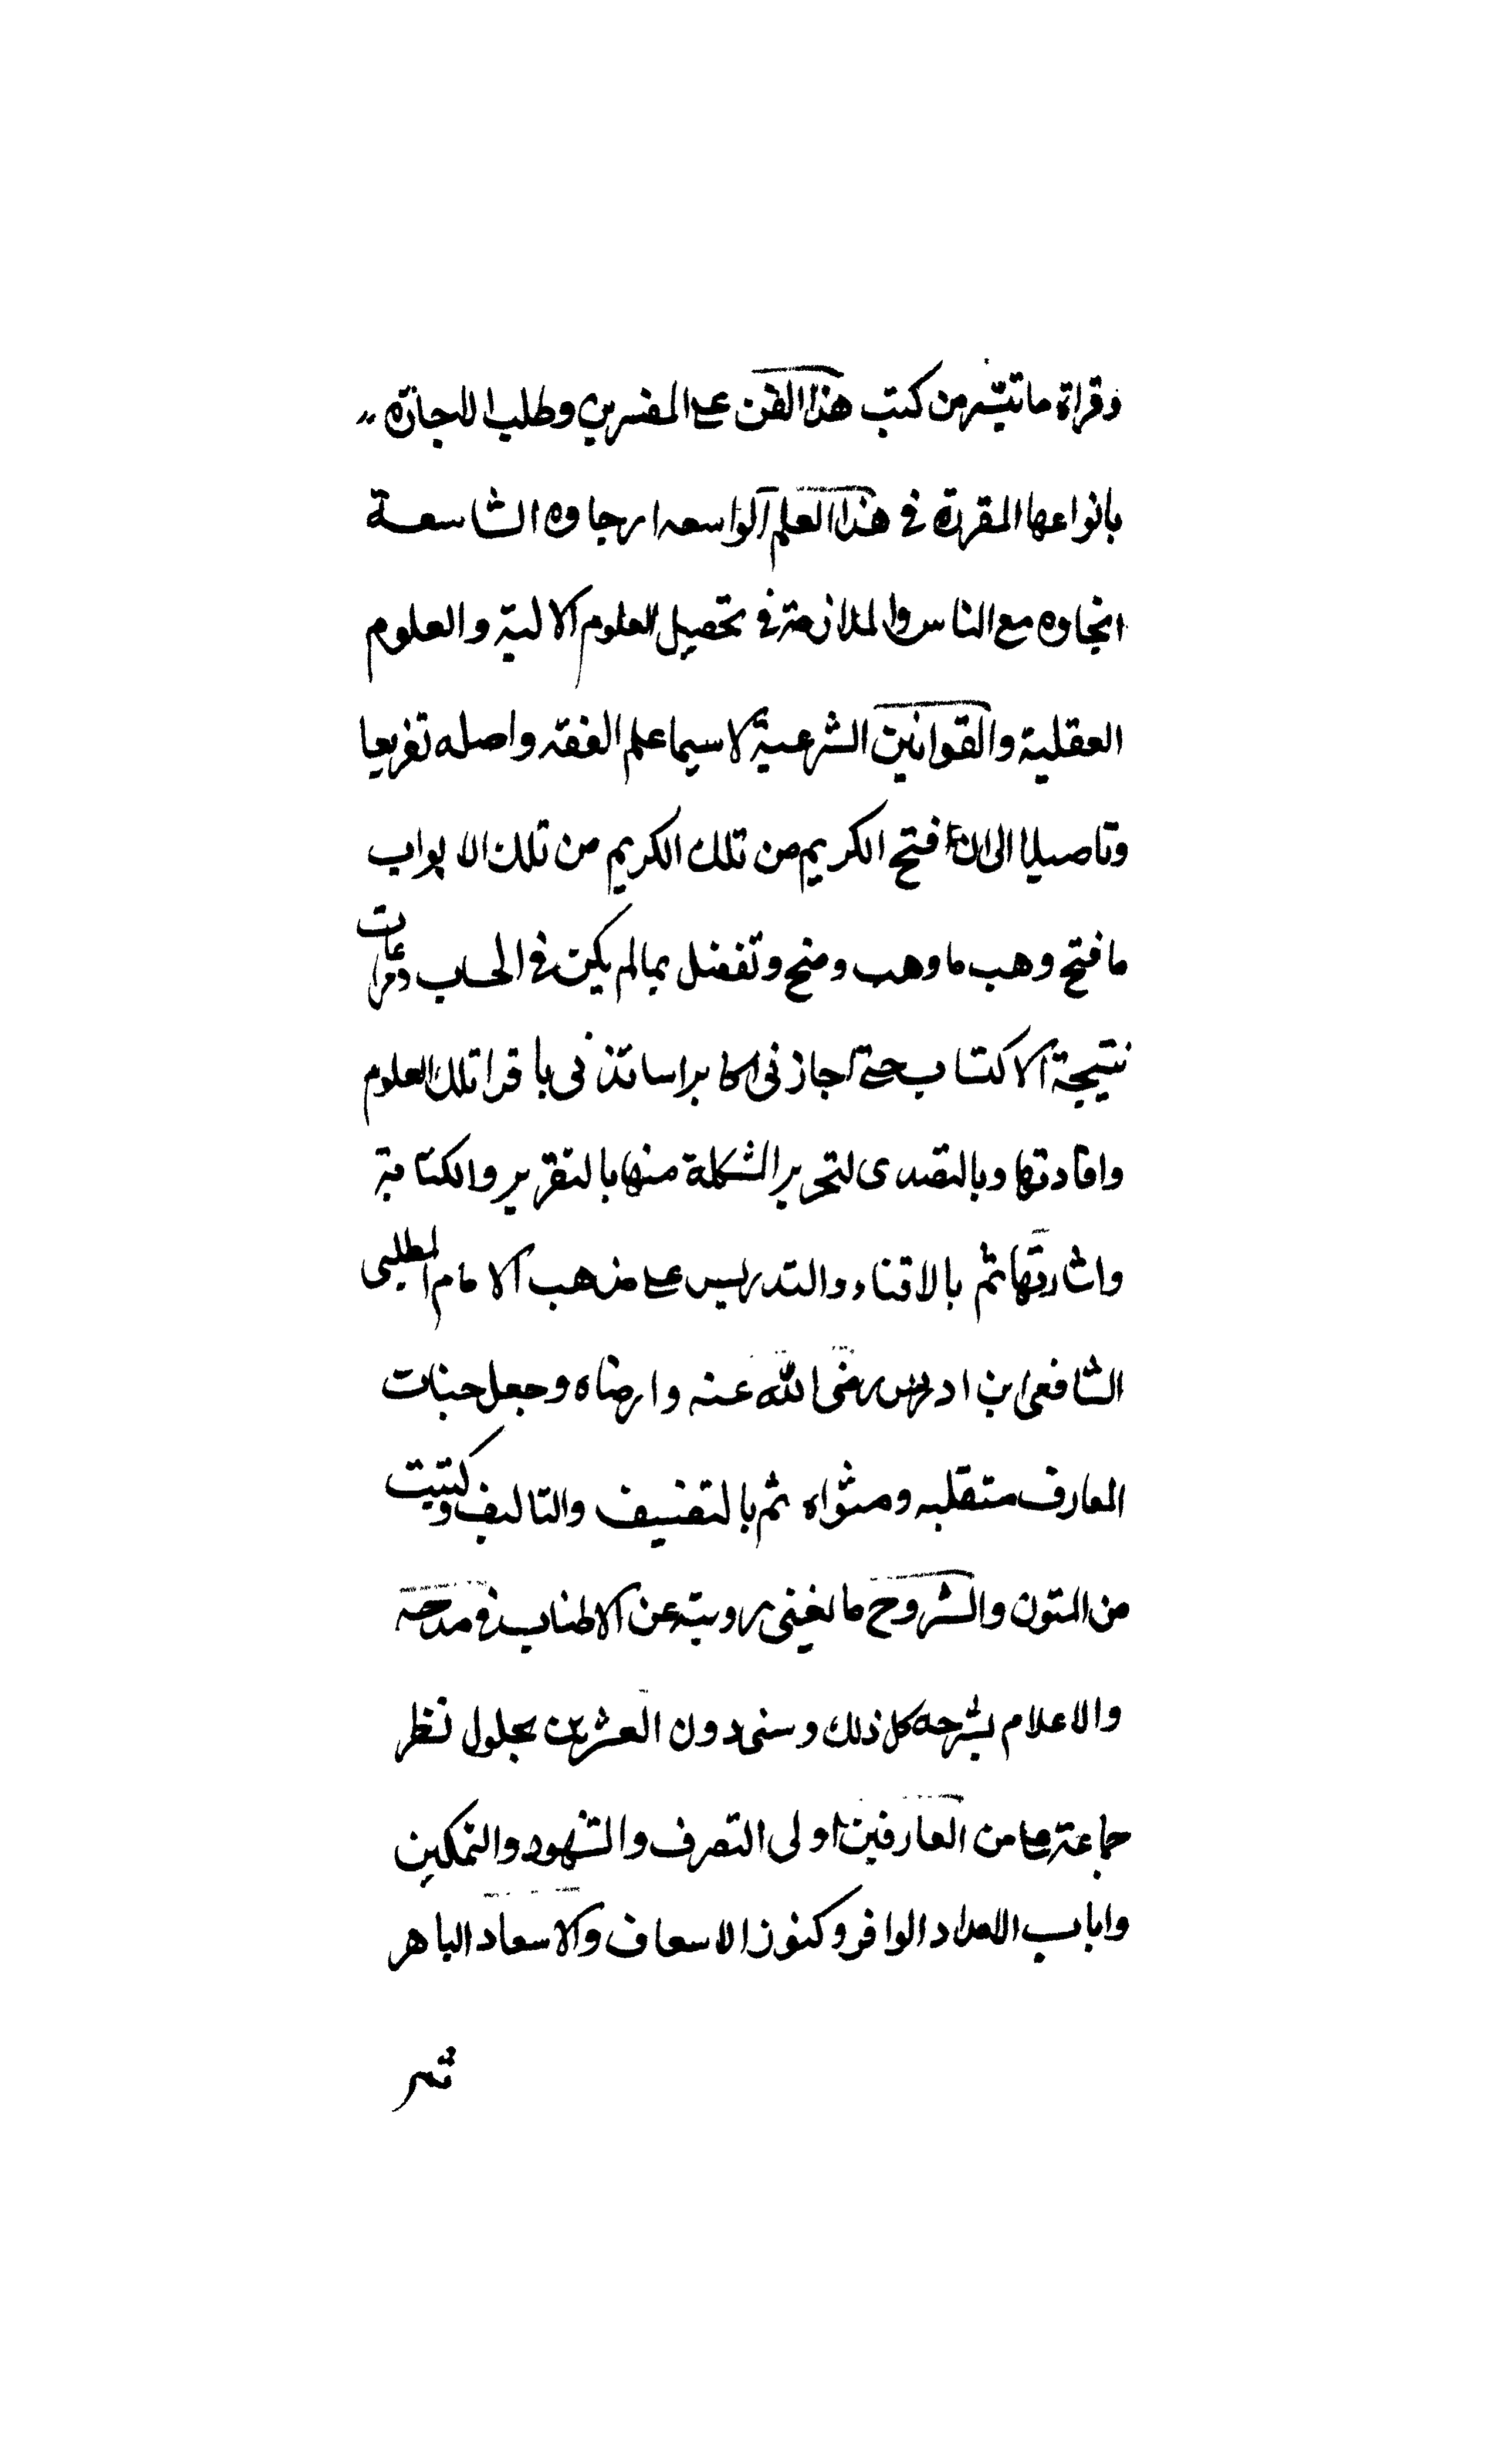 وقراة ما تيسر من كتب هذا الفن على المفسرين وطلب الاجازه
بانواعها المقررة في هذا العلم الواسعه ارجاوه الشاسعة
انجاوه مع الناس والملازمة في تحصيل العلوم الالية والعلوم
العقلية والقوانين الشرعية لا سيما علم الفقه واصله تفريعا
وتاصيلا الى ان فتح الكريم من تلك الكريم من تلك الابواب
ما فتح وهب ما وهب ومنح وتفضل بما لم يكن في الحساب
نتيجة الاكتساب حتى اجازني اكابر اساتذني با قرا تلك العلوم
وافادتها وبالتصدى لتحرير المشكلة منها بالتقرير والكتابة
واشارتها ثم بالافتاء والتدريس على مذهب الامام المطلبى
الشافعى ابن ادريس رضى الله عنه وارضاه وجعل جنات
المعارف متقلبه ومثواه ثم بالتصنيف والتاليف وكتبت
من المتون والشروح ما يغنى رويته عن الاطناب في مدحه
والاعلام بشرحه كل ذلك وسنى دون العشرين بحلول نظر
جماعة من العارفين اولى التصرف والشهود والتمكين
وابا ب الامداد الوافر وكنوز الاسعاف والاسعاد الباهر
ثم